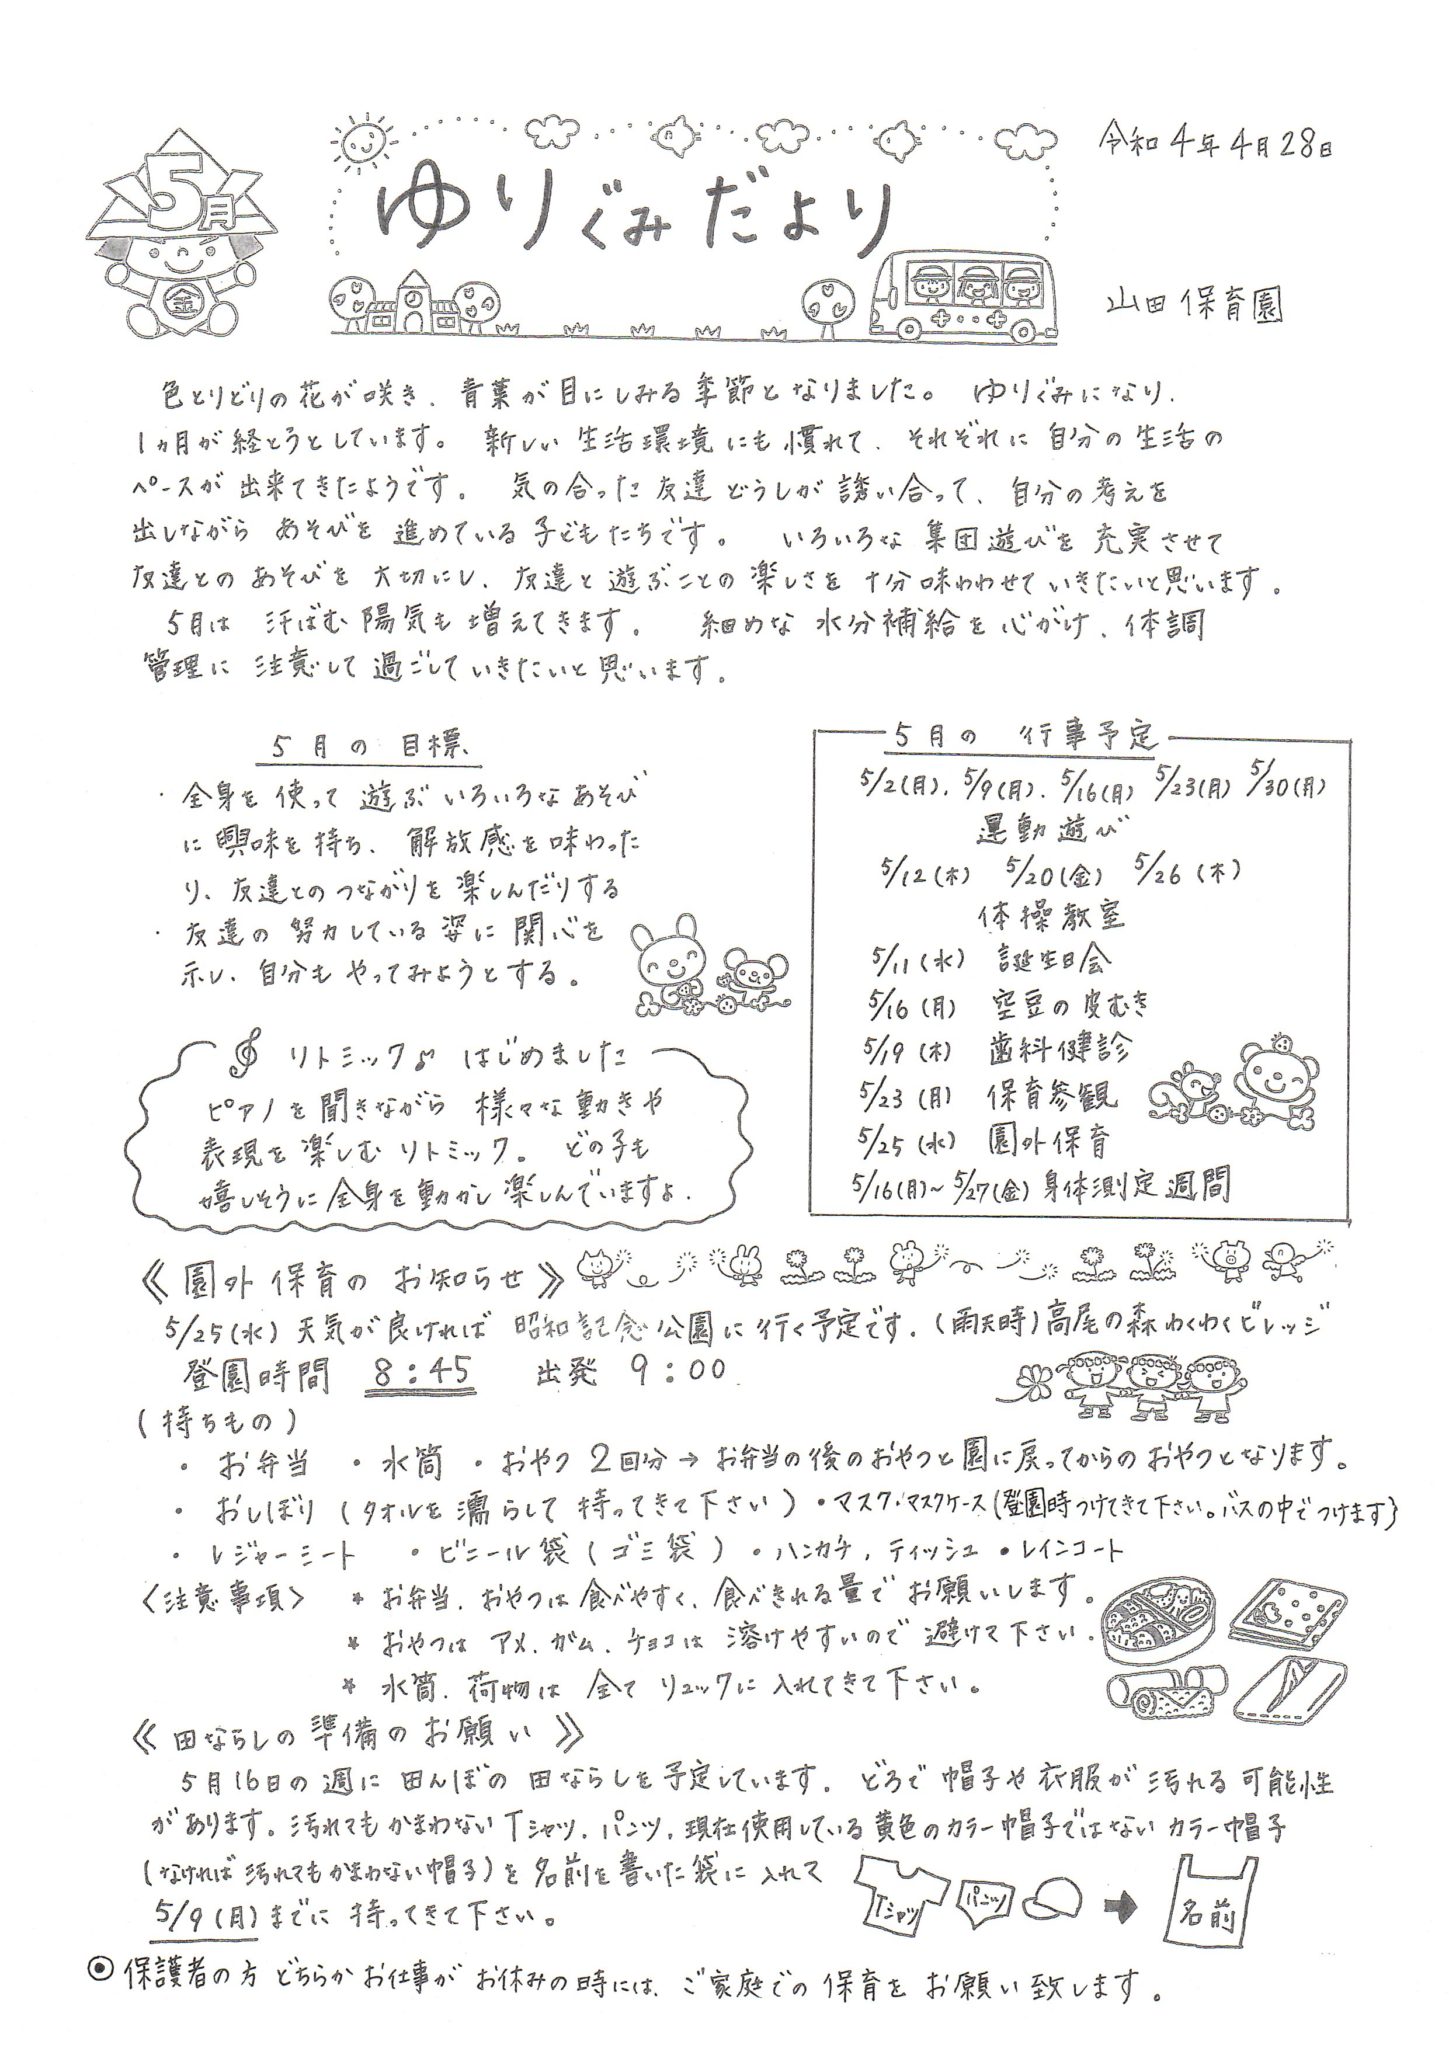 令和4年4月28日
5月
金
ゆりぐみだより
山田保育園
色とりどりの花が咲き、青葉が目にしみる季節となりました。 ゆりぐみになり、
1ヵ月が経とうとしています。 新しい生活環境にも慣れて、それぞれに自分の生活の
ペースが出来てきたようです。 気の合った友達どうしが誘い合って、自分の考えを
出しながら あそびを進めている子どもたちです。 いろいろな集団遊びを充実させて
友達とのあそびを大切にし、友達と遊ぶことの楽しさを十分味わわせていきたいと思います。
5月は 汗ばむ陽気も増えてきます。 細めな水分補給を心がけ、体調
管理に注意して過ごしていきたいと思います。
5月の目標
・全身を使って遊ぶいろいろなあそび
に興味を持ち、解放感を味わった
り、友達とのつながりを楽しんだりする
・友達の努力している姿に関心を
示し、自分もやってみようとする。
リトミック♪ はじめました
ピアノを聞きながら 様々な動きや
表現を楽しむリトミック。 どの子も
嬉しそうに全身を動かし楽しんでいますよ。
5月の 行事予定
5/2(月)、5/9(月)、5/16(月) 5/23(月) 5/30(月)
運動遊び
5/12(木) 5/20(金) 5/26(木)
体操教室
5/11(水) 誕生日会
5/16(月) 空豆の皮むき
5/19(木) 歯科健診
5/23(月) 保育参観
5/25(水) 園外保育
5/16(月)~5/27(金)身体測定週間
《園外保育のお知らせ》
5/25(水)天気が良ければ 昭和記念公園に行く予定です。(雨天時)高尾の森わくわくビレッジ
登園時間 8:45 出発 9:00
(持ちもの)
・お弁当 ・水筒 ・おやつ 2回分→お弁当の後のおやつと園に戻ってからのおやつとなります。
・おしぼり(タオルを濡らして持ってきて下さい)・マスク・マスクケース(登園時つけてきて下さい。バスの中でつけます)
・レジャーシート ・ビニール袋(ゴミ袋)・ハンカチ、ティッシュ ・レインコート
〈注意事項〉 *お弁当、おやつは食べやすく、食べきれる量でお願いします。
*おやつは アメ、ガム、チョコは 溶けやすいので避けて下さい。
*水筒、荷物は 全て リュックに入れてきて下さい。
《田ならしの準備のお願い》
5月16日の週に田んぼの田ならしを予定しています。どろで帽子や衣服が汚れる可能性
があります。汚れてもかまわないTシャツ、パンツ、現在使用している黄色のカラー帽子ではないカラー帽子
(なければ汚れてもかまわない帽子)を名前を書いた袋に入れて
5/9(月)までに持ってきて下さい。
Tシャツ
パンツ
名前
◎保護者の方どちらかお仕事がお休みの時には、ご家庭での保育をお願い致します。